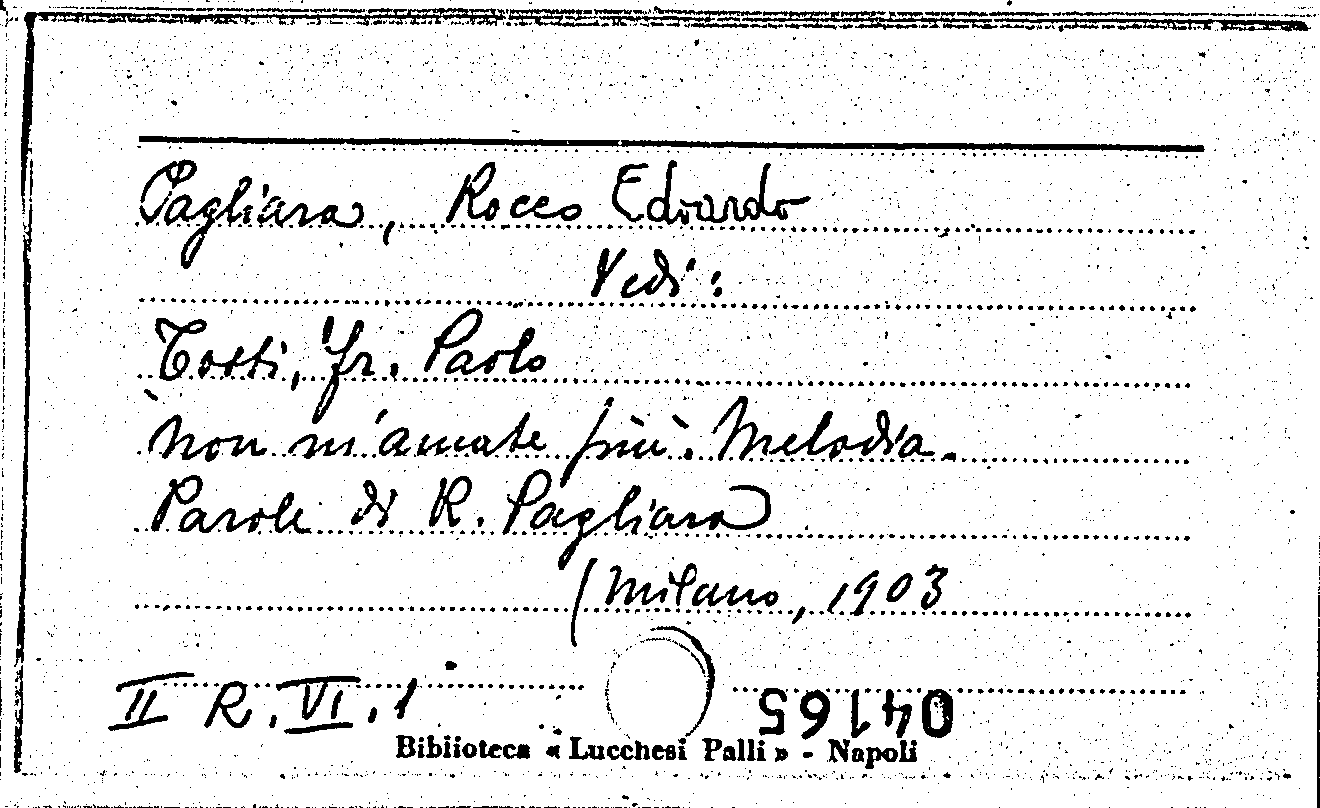 Pagliara, Rocco Edoardo
Vedi:
Tosti, Fr. Paolo
Non m'amate più. Melodia.
Parole di R. Pagliara
(Milano, 1903
II R. VI. 1
04165
Biblioteca « Lucchesi Palli » - Napoli